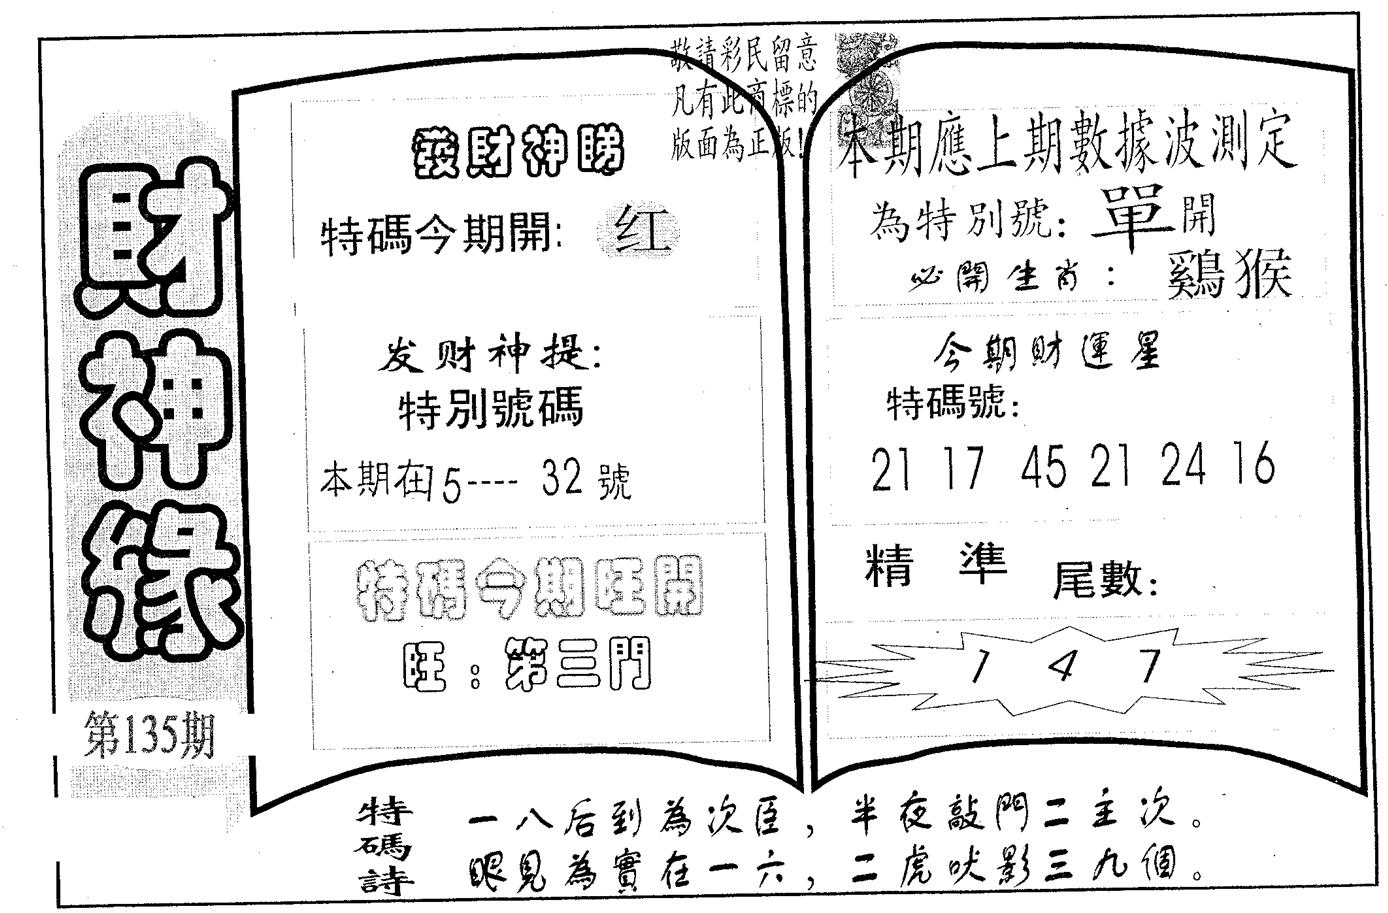 財神緣
第135期
敬請彩民留意
凡有此商標的
版面為正版!
發財神睇
特碼今期開: 红
发财神提:
特別號碼
本期在15---- 32號
特碼今期旺開
旺:第三門
本期應上期數據波測定
為特別號: 單開
必開生肖: 鷄猴
今期財運星
特碼號:
21 17 45 21 24 16
精準 尾數:
1 4 7
特碼詩
一八后到為次臣,半夜敲門二主次。
眼見為實在一六,二虎吠影三九個。